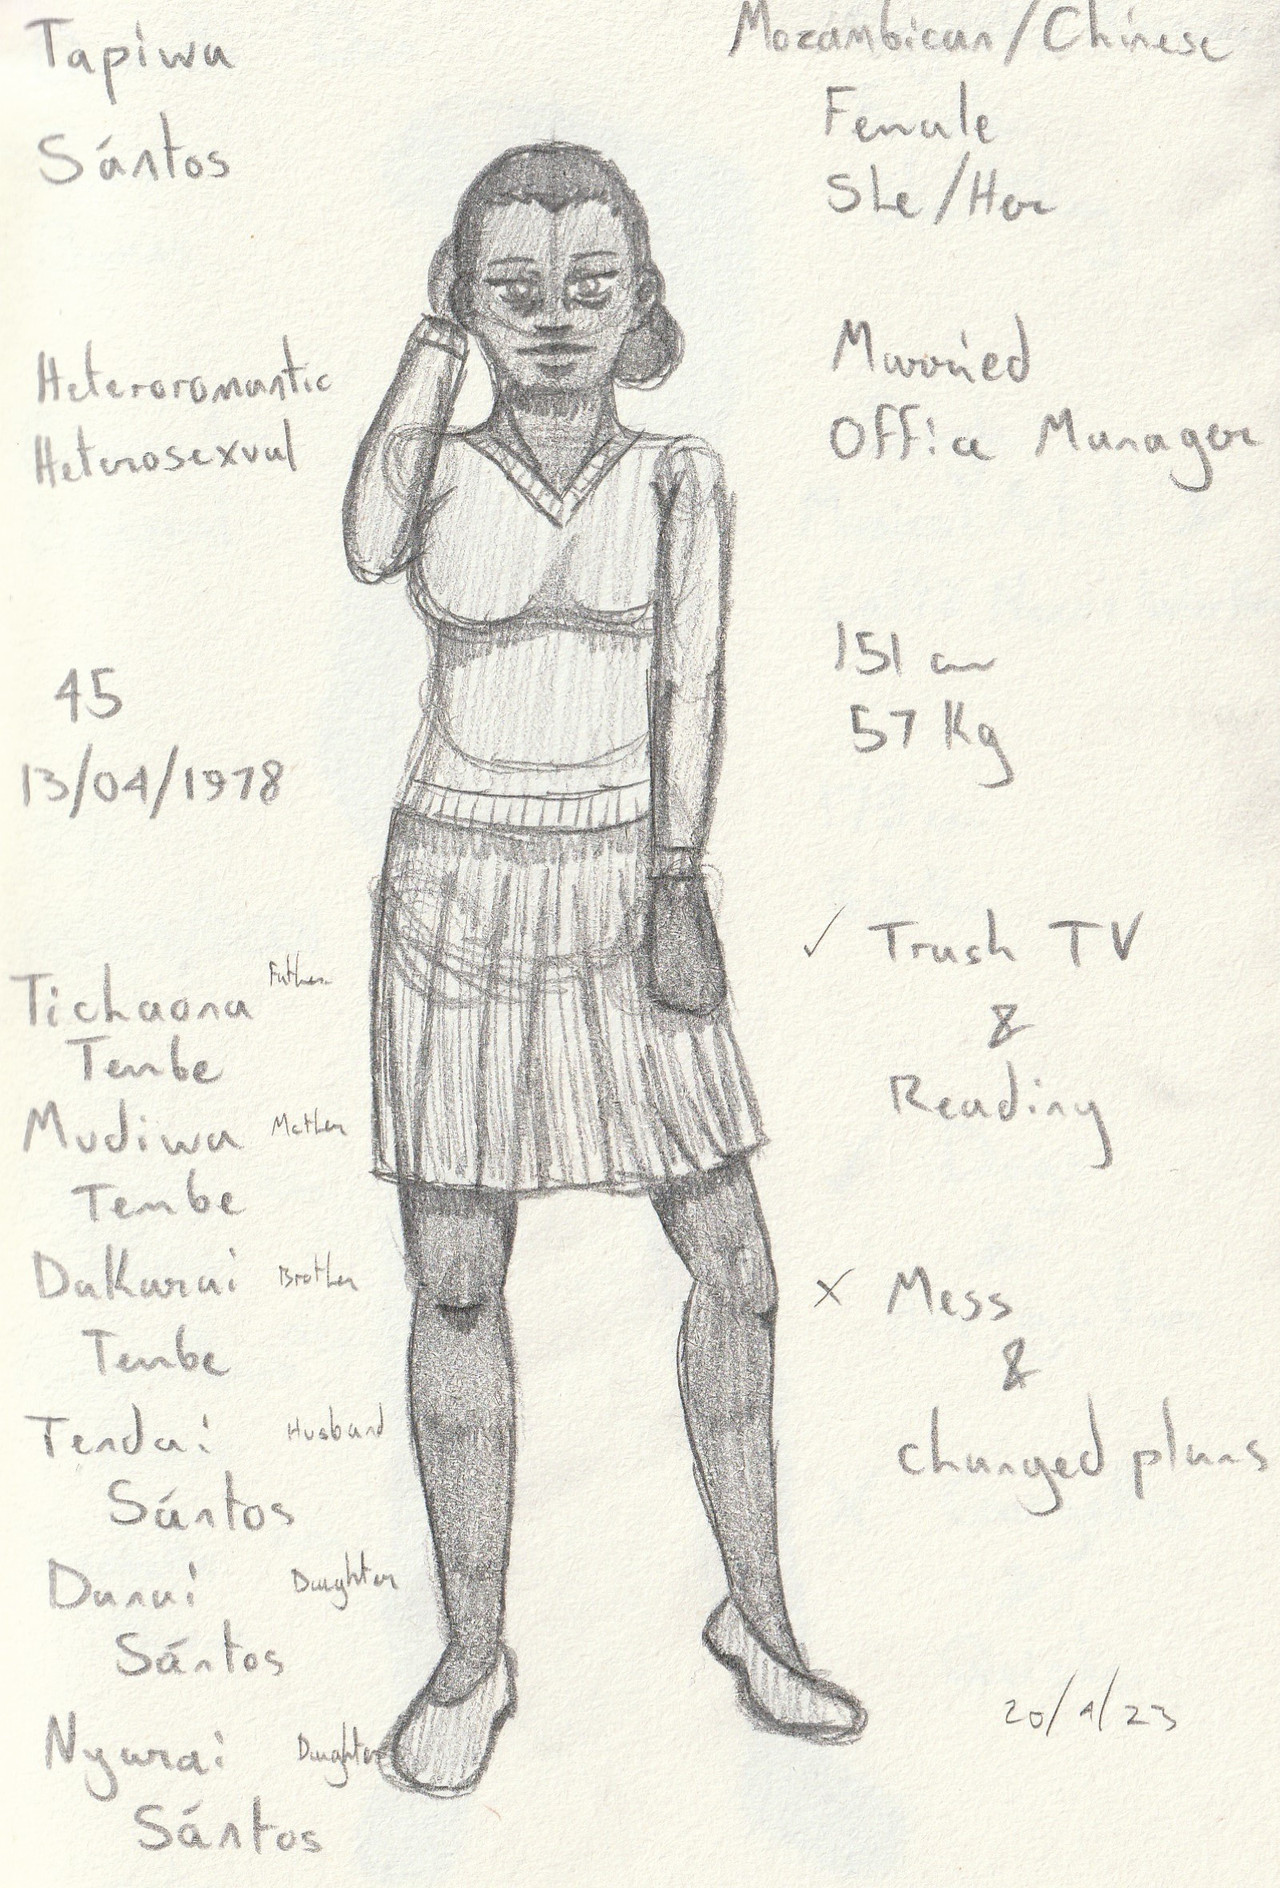 Tapiwa
Sántos
Mozambican/Chinese
Female
She/Her
Heteroromantic
Heterosexual
Married
Office Manager
45
13/04/1978
151 cm
57 Kg
Tichaona Father
Tembe
Mudiwa Mother
Tembe
Dakarai Brother
Tembe
Tendai Husband
Sántos
Danai Daughter
Sántos
Nyarai Daughter
Sántos
✓ Trash TV
&
Reading
X Mess
&
changed plans
20/4/23